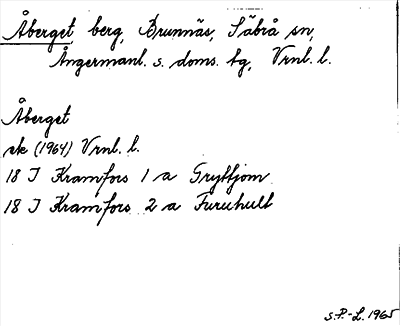 Åberget, berg, Brunnäs, Säbrå sn,
Ångermanl. s. doms. tg, Vrnl. l.
Åberget
ek (1964) Vrnl. l.
18 J Kramfors 1 a Gryttjom
18 J Kramfors 2 a Furuhult
S.P.-L. 1965